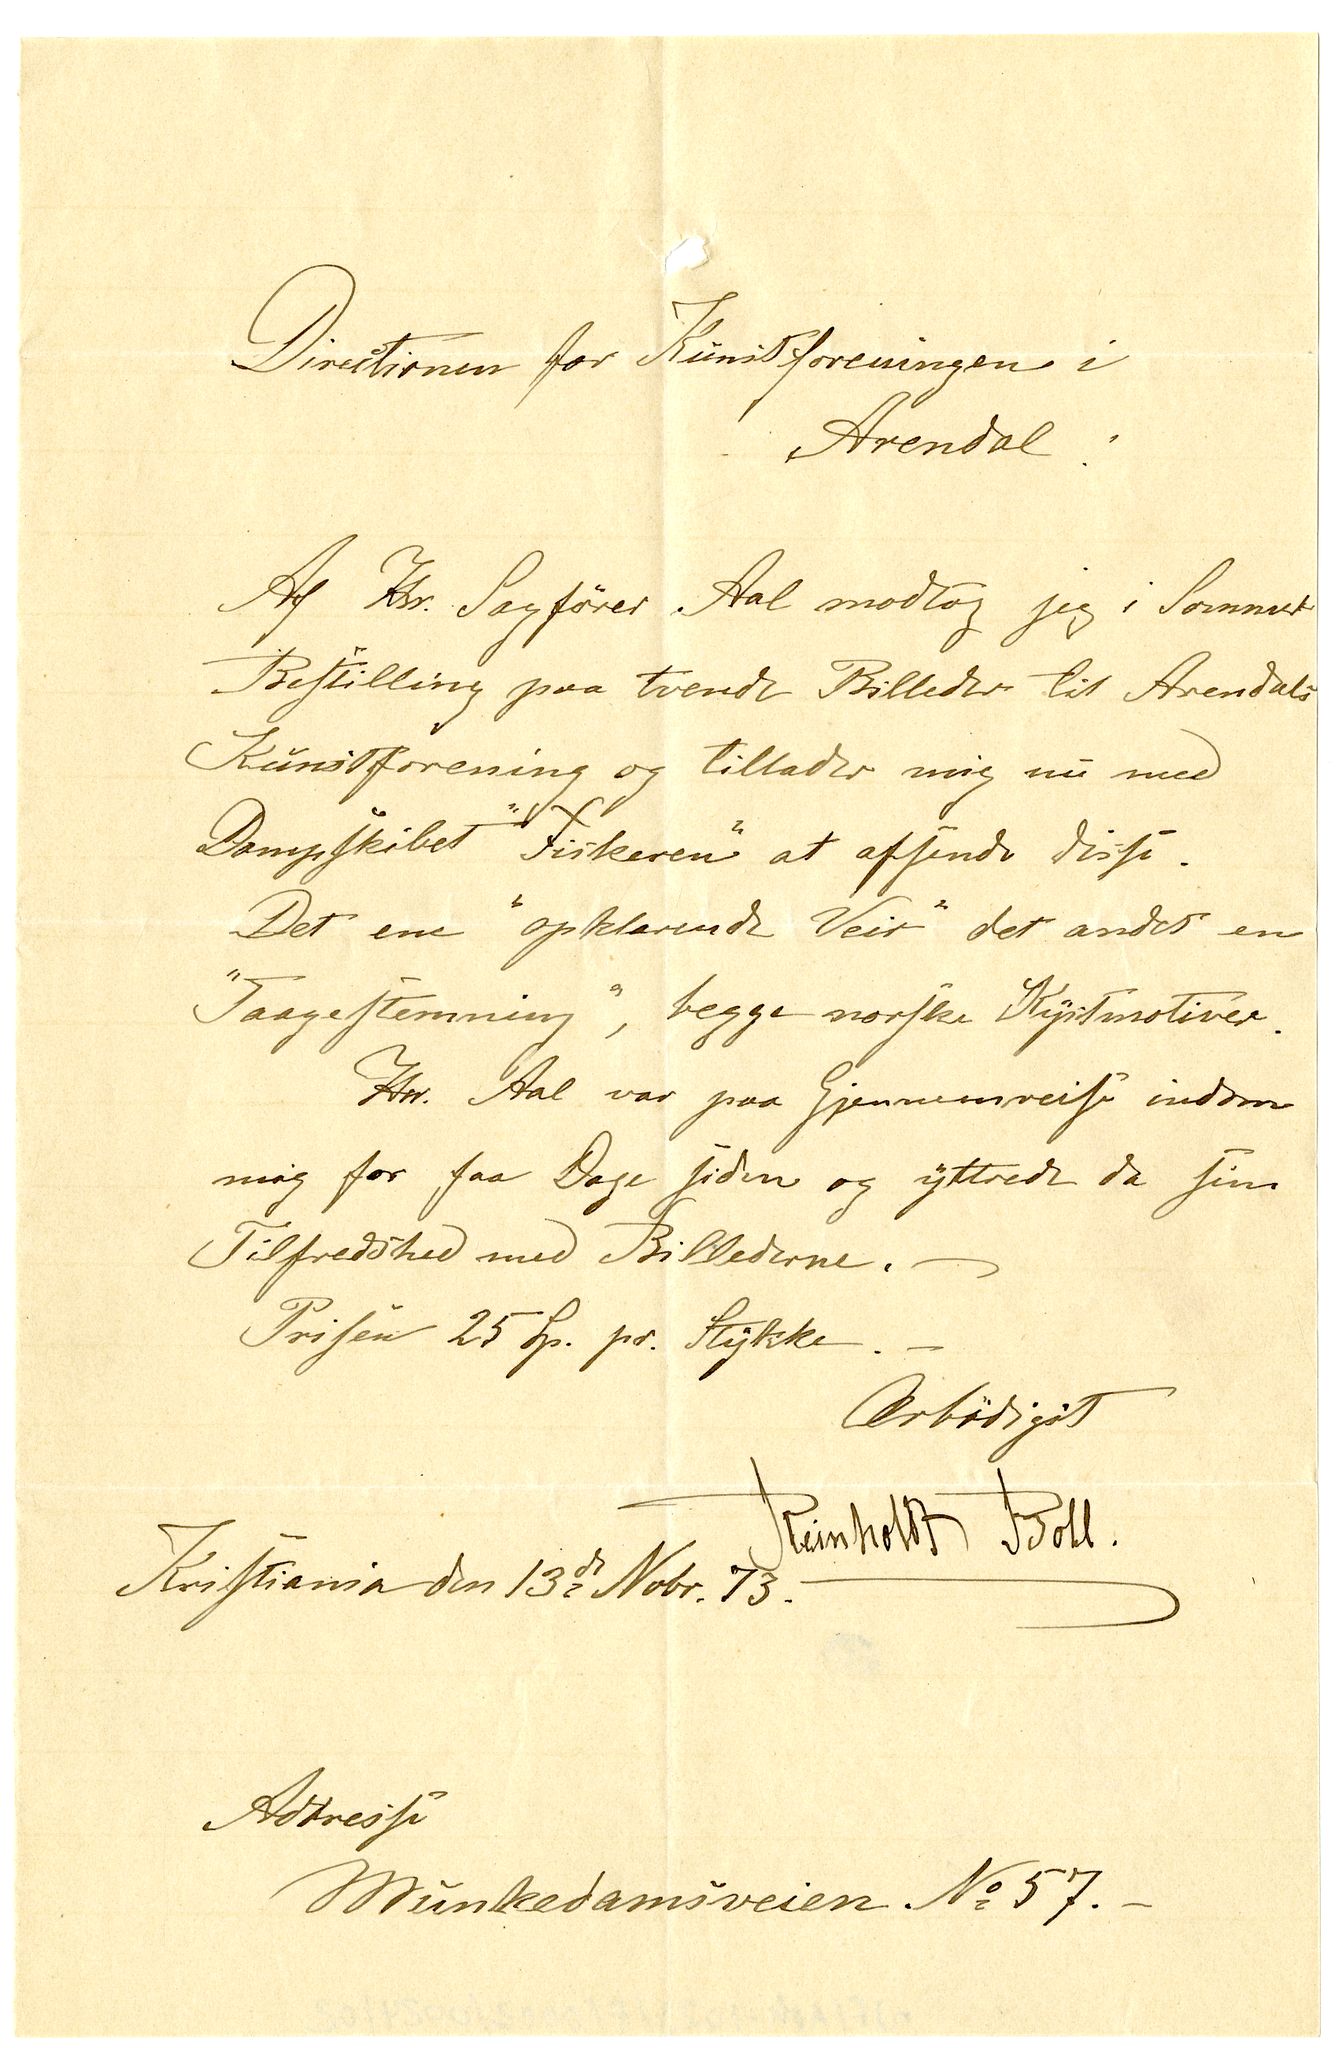 Directionen for Kunstforeningen i
Arendal :
Af Hr. Sagförer Aal modtog jeg i Sommer
Bestilling paa tvende Billeder til Arendals
Kunstforening og tillader mig nu med
Dampskibet "Fiskeren" at afsende disse.
Det ene "opklarende Veir" det andet en
"Taagestemning", begge norske Kystmotiver.
Hr. Aal var paa Gjennemreise indom
mig for faa Dage siden og yttrede da sin
Tilfredshed med Billederne. —
Prisen 25 Sp. pr. Stykke. —
Ærbödigst
Reinholdt Boll.
Kristiania den 13de Nobr. 73.
Adresse
Munkedamsveien No 57. —